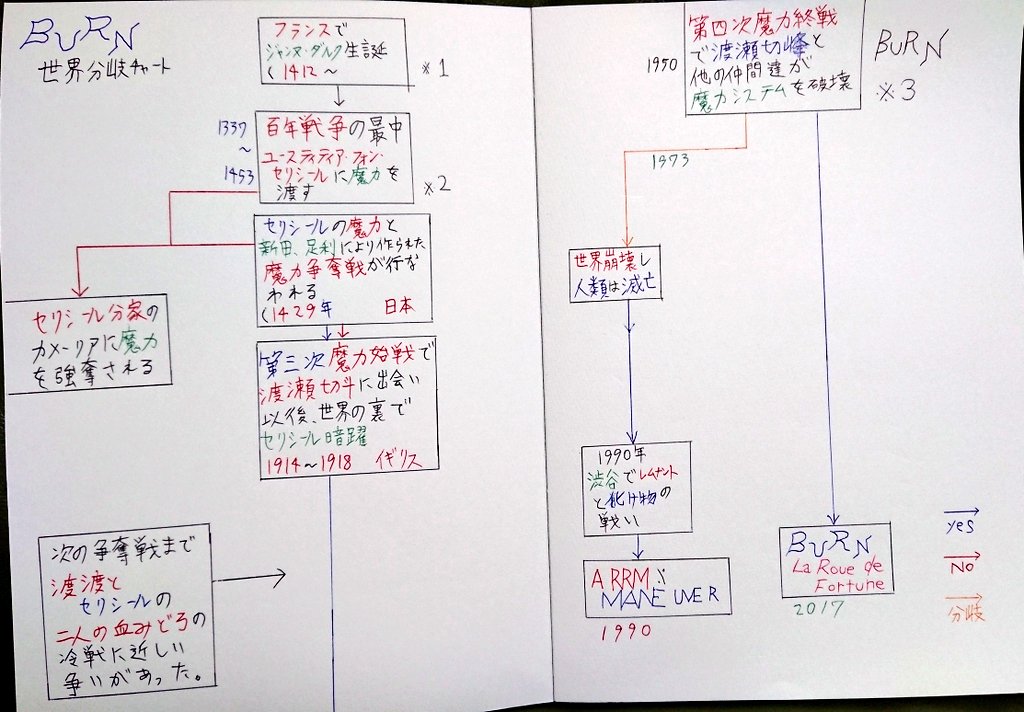 BURN
世界分岐チャート
フランスで
ジャンヌ・ダルク生誕
(1412〜
※1
1337
〜
1453
百年戦争の最中
ユースティティア・フォン・
セリシールに魔力を
渡す
※2
セリシールの魔力と
新田、足利により作られた
魔力争奪戦が行な
われる
(1429年 日本
セリシール分家の
カメーリアに魔力
を強奪される
第三次魔力始戦で
渡瀬切斗に出会い
以後、世界の裏で
セリシール暗躍
1914〜1918 イギリス
次の争奪戦まで
渡渡と
セリシールの
二人の血みどろの
冷戦に近しい
争いがあった。
1950
第四次魔力終戦
で渡瀬切峰と
他の仲間達が
魔力システムを破壊
BURN
※3
1973
世界崩壊し
人類は滅亡
1990年
渋谷でレムナント
と化け物の
戦い
ARRM:
MANEUVER
1990
BURN
La Roue de
Fortune
2017
yes
No
分岐